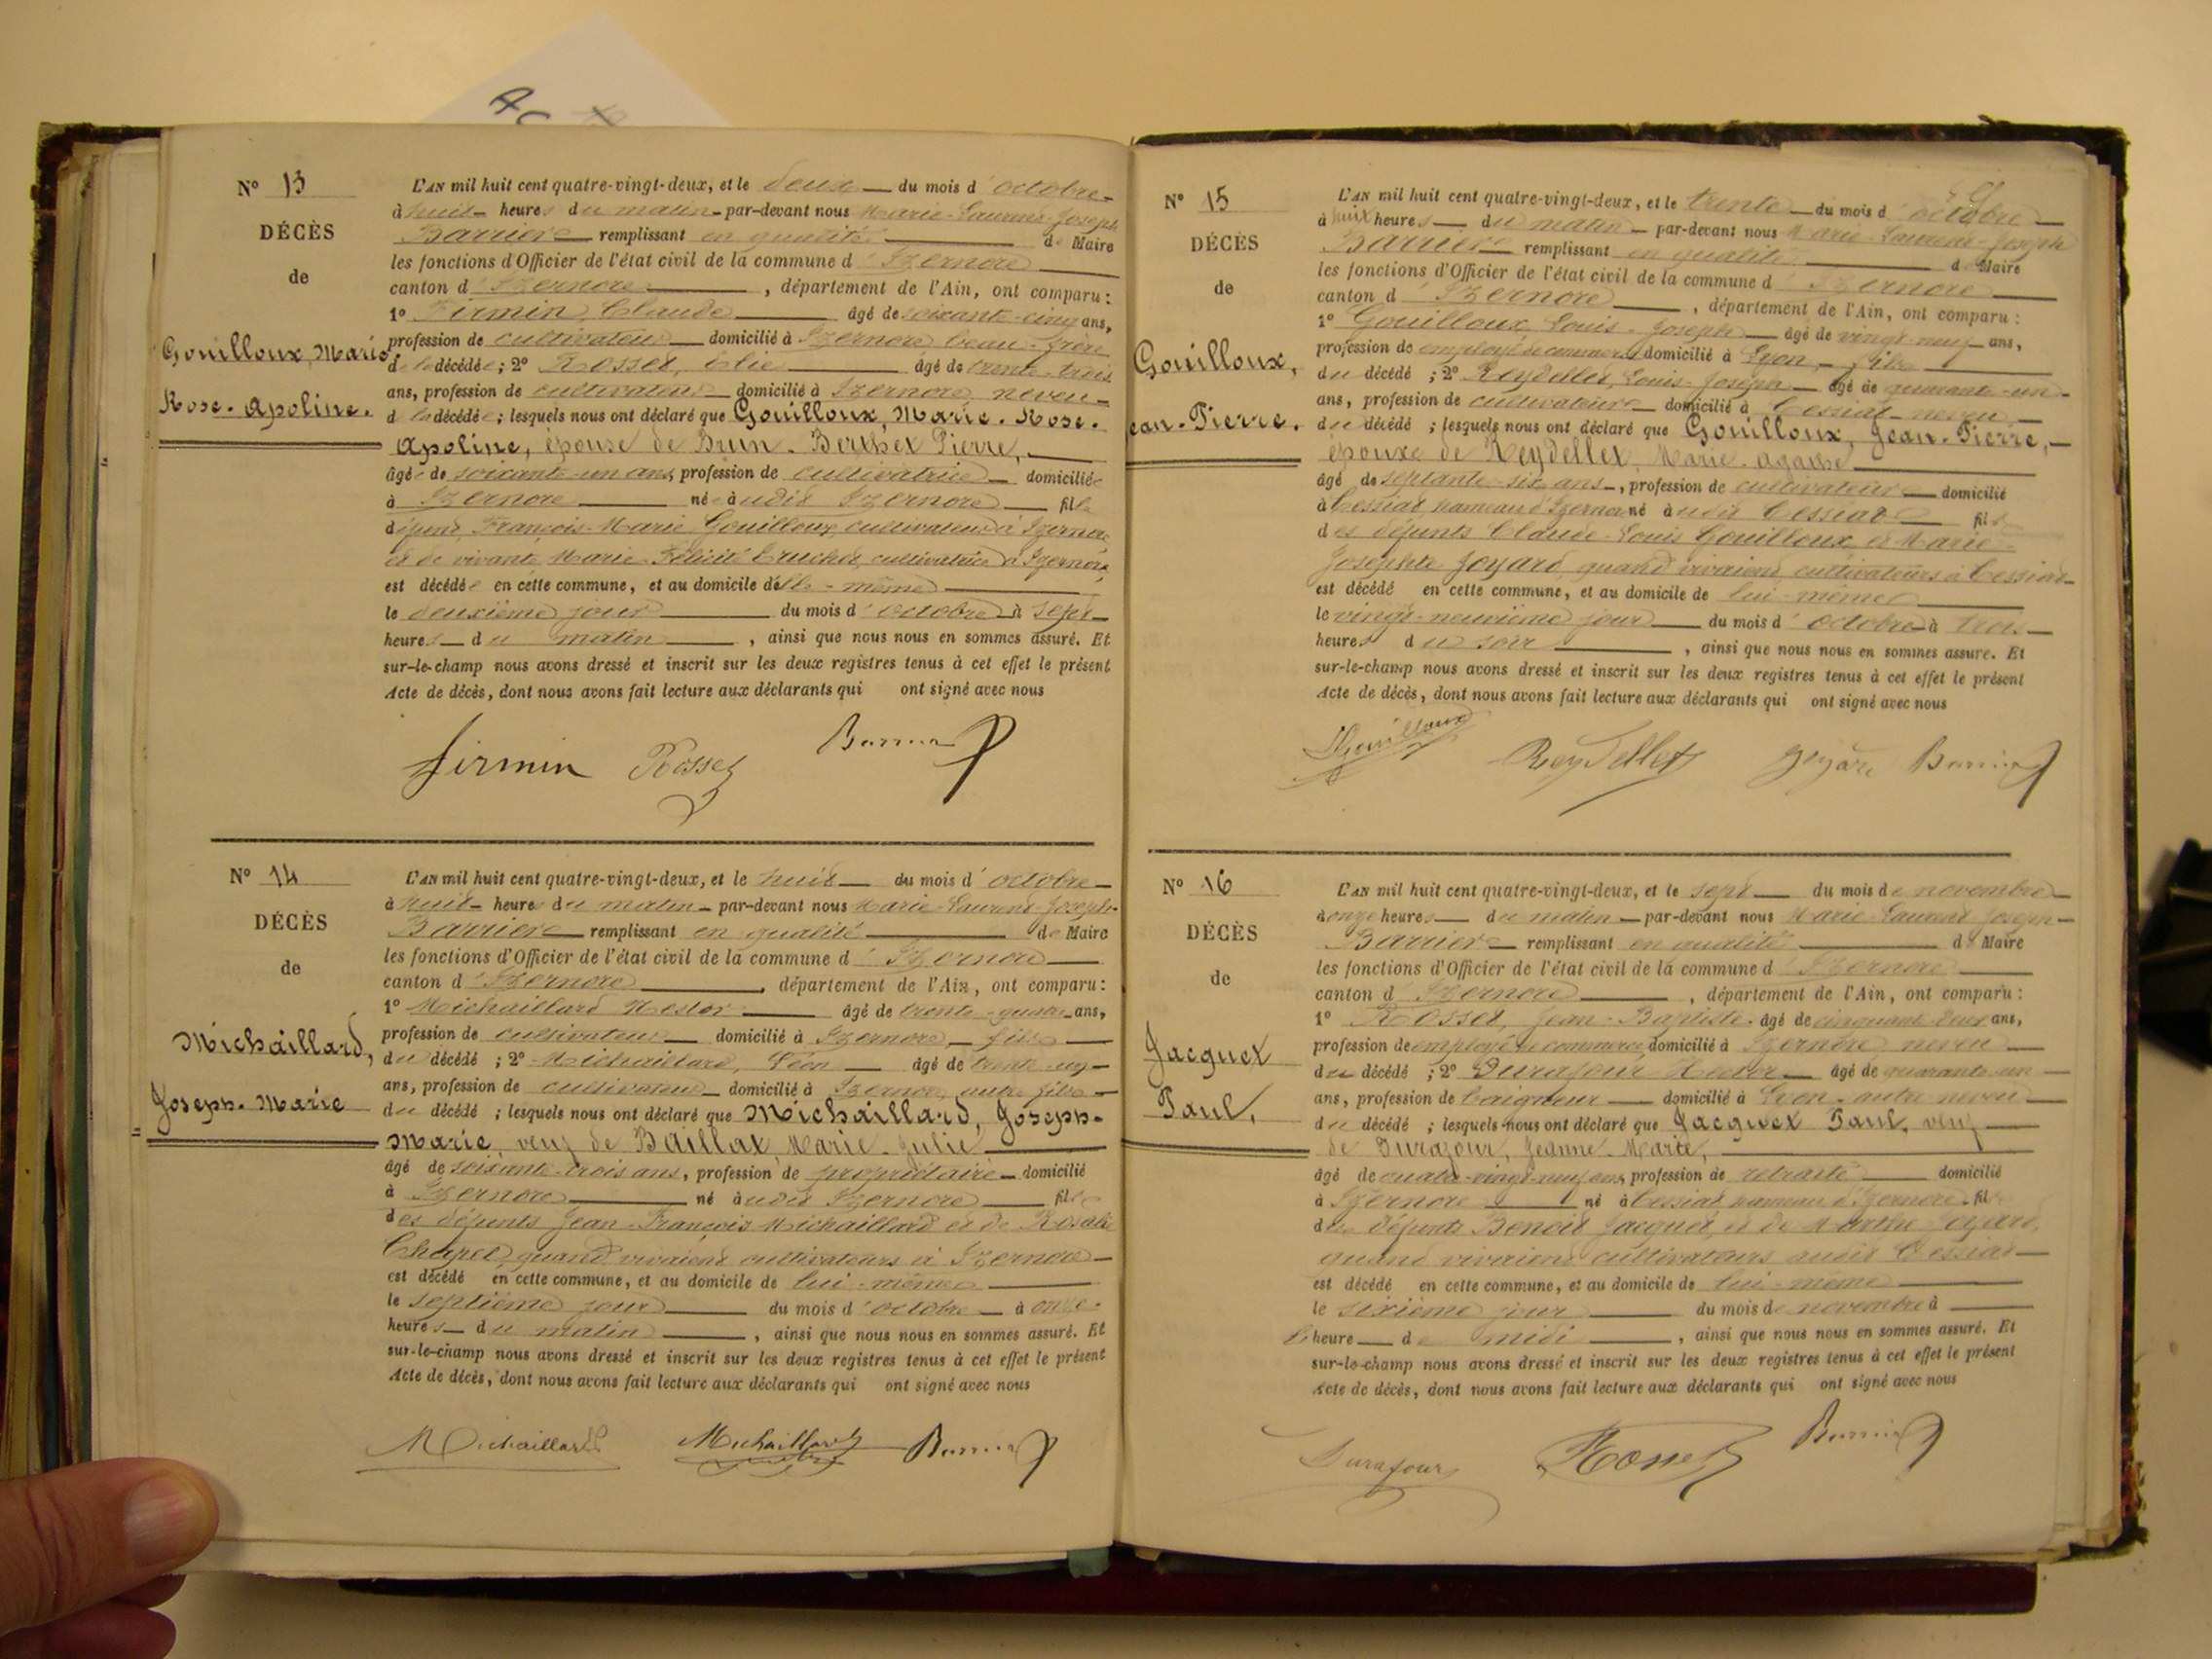 N° 13
DÉCÈS
de
Gouilloux, Marie
Rose-Apoline.
L'AN mil huit cent quatre-vingt-deux, et le deux du mois d'octobre
à huit heures du matin par-devant nous Marie-Laurent-Joseph
Barrière remplissant en qualité de Maire
les fonctions d'Officier de l'état civil de la commune d'Izernore
canton d'Izernore, département de l'Ain, ont comparu :
1° Firmin, Claude âgé de soixante-cinq ans,
profession de cultivateur domicilié à Izernore beau-frère
de la décédée ; 2° Rosset, Elie âgé de trente-trois
ans, profession de cultivateur domicilié à Izernore, neveu
de la décédée ; lesquels nous ont déclaré que Gouilloux, Marie-Rose-
Apoline, épouse de Brun-Berthet Pierre,
âgée de soixante-un ans, profession de cultivatrice domiciliée
à Izernore née audit Izernore fille
défunt François-Marie Gouilloux, cultivateur à Izernore
et de vivante Marie-Félicité Cruchet, cultivatrice à Izernore
est décédée en cette commune, et au domicile d'elle-même
le deuxième jour du mois d'octobre à sept
heures du matin, ainsi que nous nous en sommes assuré. Et
sur-le-champ nous avons dressé et inscrit sur les deux registres tenus à cet effet le présent
Acte de décès, dont nous avons fait lecture aux déclarants qui ont signé avec nous
firmin Rosset Barrière
N° 14
DÉCÈS
de
Michaillard,
Joseph-Marie
L'AN mil huit cent quatre-vingt-deux, et le huit du mois d'octobre
à huit heures du matin par-devant nous Marie-Laurent-Joseph-
Barrière remplissant en qualité de Maire
les fonctions d'Officier de l'état civil de la commune d'Izernore
canton d'Izernore, département de l'Ain, ont comparu :
1° Michaillard Nestor âgé de trente-quatre ans,
profession de cultivateur domicilié à Izernore fils
du décédé ; 2° Michaillard, Léon âgé de trente-un
ans, profession de cultivateur domicilié à Izernore, autre fils
du décédé ; lesquels nous ont déclaré que Michaillard, Joseph-
Marie, veuf de Baillat, Marie-Julie
âgé de soixante-trois ans, profession de propriétaire domicilié
à Izernore né audit Izernore fils
des défunts Jean-François Michaillard et de Rosalie
Chapel, quand vivaient cultivateurs à Izernore
est décédé en cette commune, et au domicile de lui-même
le septième jour du mois d'octobre à onze
heures du matin, ainsi que nous nous en sommes assuré. Et
sur-le-champ nous avons dressé et inscrit sur les deux registres tenus à cet effet le présent
Acte de décès, dont nous avons fait lecture aux déclarants qui ont signé avec nous
Michaillard Michaillard Barrière
N° 15
DÉCÈS
de
Gouilloux,
ean-Pierre.
L'AN mil huit cent quatre-vingt-deux, et le trente du mois d'octobre
à huit heures du matin par-devant nous Marie-Laurent-Joseph
Barrière remplissant en qualité de Maire
les fonctions d'Officier de l'état civil de la commune d'Izernore
canton d'Izernore, département de l'Ain, ont comparu :
1° Gouilloux Louis-Joseph âgé de vingt-neuf ans,
profession de employé de commerce domicilié à Lyon, fils
du décédé ; 2° Reydellet, Louis-Joseph âgé de quarante-un
ans, profession de cultivateur domicilié à Cessiat neveu
du décédé ; lesquels nous ont déclaré que Gouilloux, Jean-Pierre,
époux de Reydellet, Marie-Agathe
âgé de septante-six ans, profession de cultivateur domicilié
à Cessiat, hameau d'Izernore né audit Cessiat fils
des défunts Claude-Louis Gouilloux et Marie
Josephte Joyard, quand vivaient cultivateurs à Cessiat
est décédé en cette commune, et au domicile de lui-même
le vingt-neuvième jour du mois d'octobre à trois
heures du soir, ainsi que nous nous en sommes assuré. Et
sur-le-champ nous avons dressé et inscrit sur les deux registres tenus à cet effet le présent
Acte de décès, dont nous avons fait lecture aux déclarants qui ont signé avec nous
LGouilloux Reydellet Joyard Barrière
N° 16
DÉCÈS
de
Jacquet
Paul,
L'AN mil huit cent quatre-vingt-deux, et le sept du mois de novembre
à onze heures du matin par-devant nous Marie-Laurent Joseph
Barrière remplissant en qualité de Maire
les fonctions d'Officier de l'état civil de la commune d'Izernore
canton d'Izernore, département de l'Ain, ont comparu :
1° Rosset, Jean-Baptiste âgé de cinquante-deux ans,
profession de employé de commerce domicilié à Izernore neveu
du décédé ; 2° Durafour Hector âgé de quarante-un
ans, profession de baigneur domicilié à Lyon, autre neveu
du décédé ; lesquels nous ont déclaré que Jacquet Paul, veuf
de Durafour, Jeanne-Marie,
âgé de quatre-vingt-neuf ans, profession de retraité domicilié
à Izernore né à Cessiat hameau d'Izernore fils
des défunts Benoit Jacquet et de Joyard,
quand vivaient cultivateurs audit Cessiat
est décédé en cette commune, et au domicile de lui-même
le sixième jour du mois de novembre à
heure de midi, ainsi que nous nous en sommes assuré. Et
sur-le-champ nous avons dressé et inscrit sur les deux registres tenus à cet effet le présent
Acte de décès, dont nous avons fait lecture aux déclarants qui ont signé avec nous
Durafour Rosset Barrière